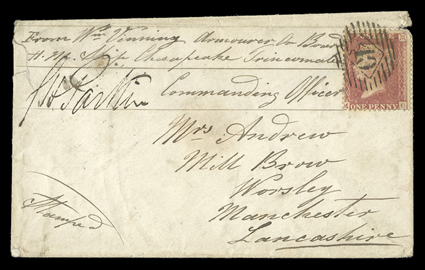 From Wm Vinning Armourer on Board
H. M. Ship Chesapeake Trincomalee
Commanding Officer
Mrs. Andrew
Mill Brow
Worsley
Manchester
Lancashire
Stamped
ONE PENNY